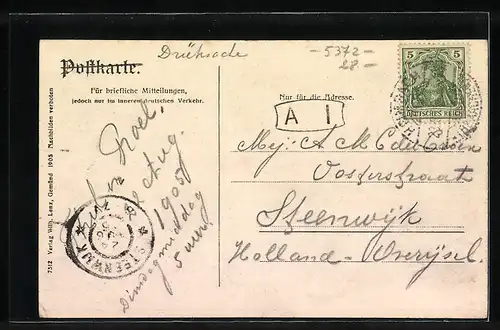 Drucksache
- 5372 -
28 -
Postkarte.
Für briefliche Mitteilungen,
jedoch nur im inneren deutschen Verkehr.
Nur für die Adresse.
5 5
DEUTSCHES REICH
A I
Mej: A M C
Oosterstraat
Steenwijk
Holland - Overijsel.
1905
Dinsdagmiddag
5 uur
STEENWIJK
7312 Verlag Wilh. Lenz, Gemünd 1905 Nachbilden verboten